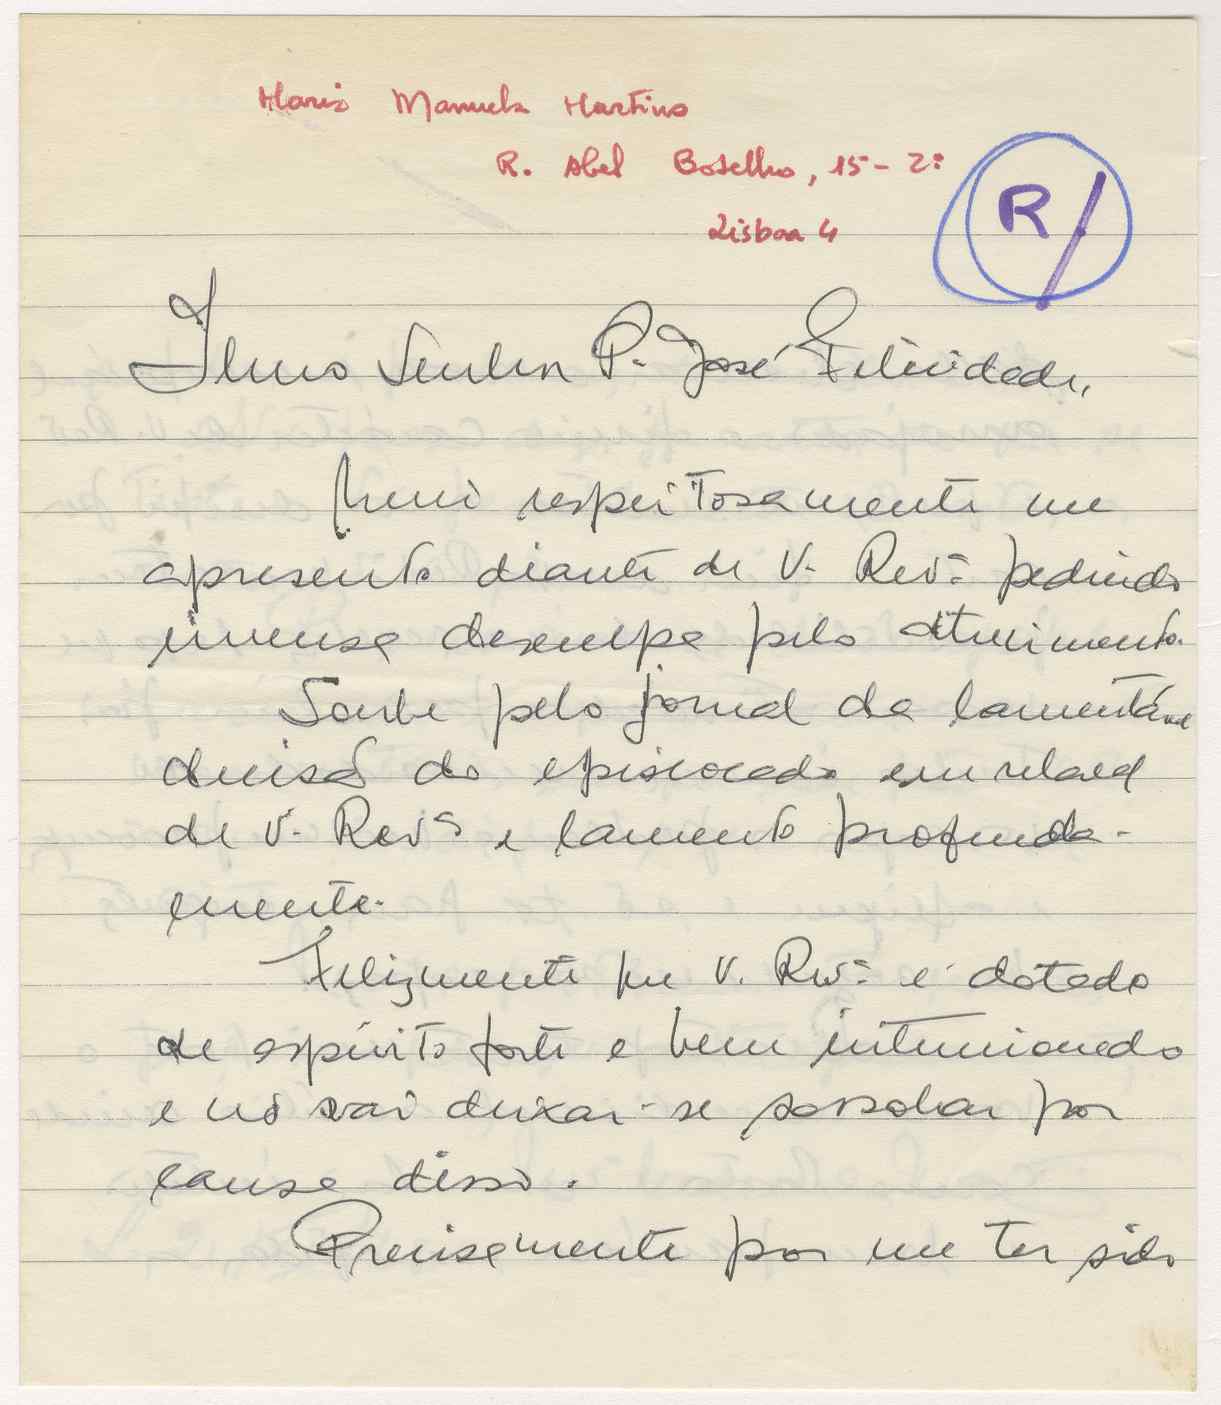 Maria Manuela Martins
R. Abel Botelho, 15-2º
Lisboa 4
R/
Ilmo Senhor P. José Felicidade,
Muui respeitosamente me
apresento diante de V. Revª pedindo
imensa desculpa pelo atrevimento.
Soube pelo jornal da lamentável
decisão do episcocado em relação
de V. Revª e lamento profunda-
mente.
Felizmente que V. Revª é dotado
de espírito forte e bem intencionado
e não vai deixar-se sossobrar por
causa disso.
Precisamente por me ter sido